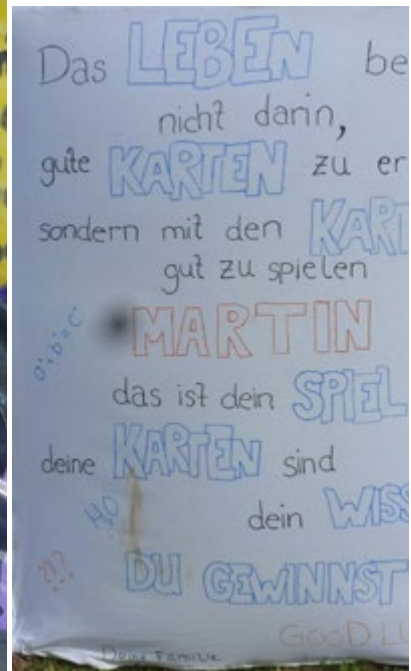 Das LEBEN be
nicht darin,
gute KARTEN zu er
sondern mit den KART
gut zu spielen
MARTIN
a²+b²=c²
das ist dein SPIEL
deine KARTEN sind
H₂O
dein WISS
???
DU GEWINNST
GOOD LU
Deine Familie